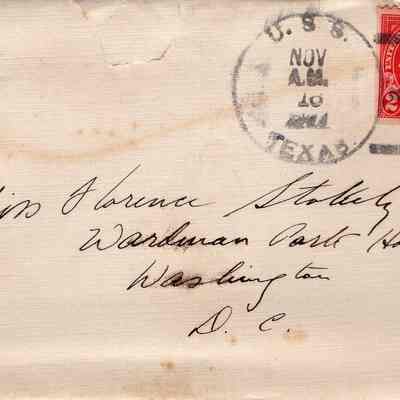 U. S. S.
NOV
A.M.
16
TEXAS
2
Miss Florence Stokely
Wardman Park Ho
Washington
D. C.